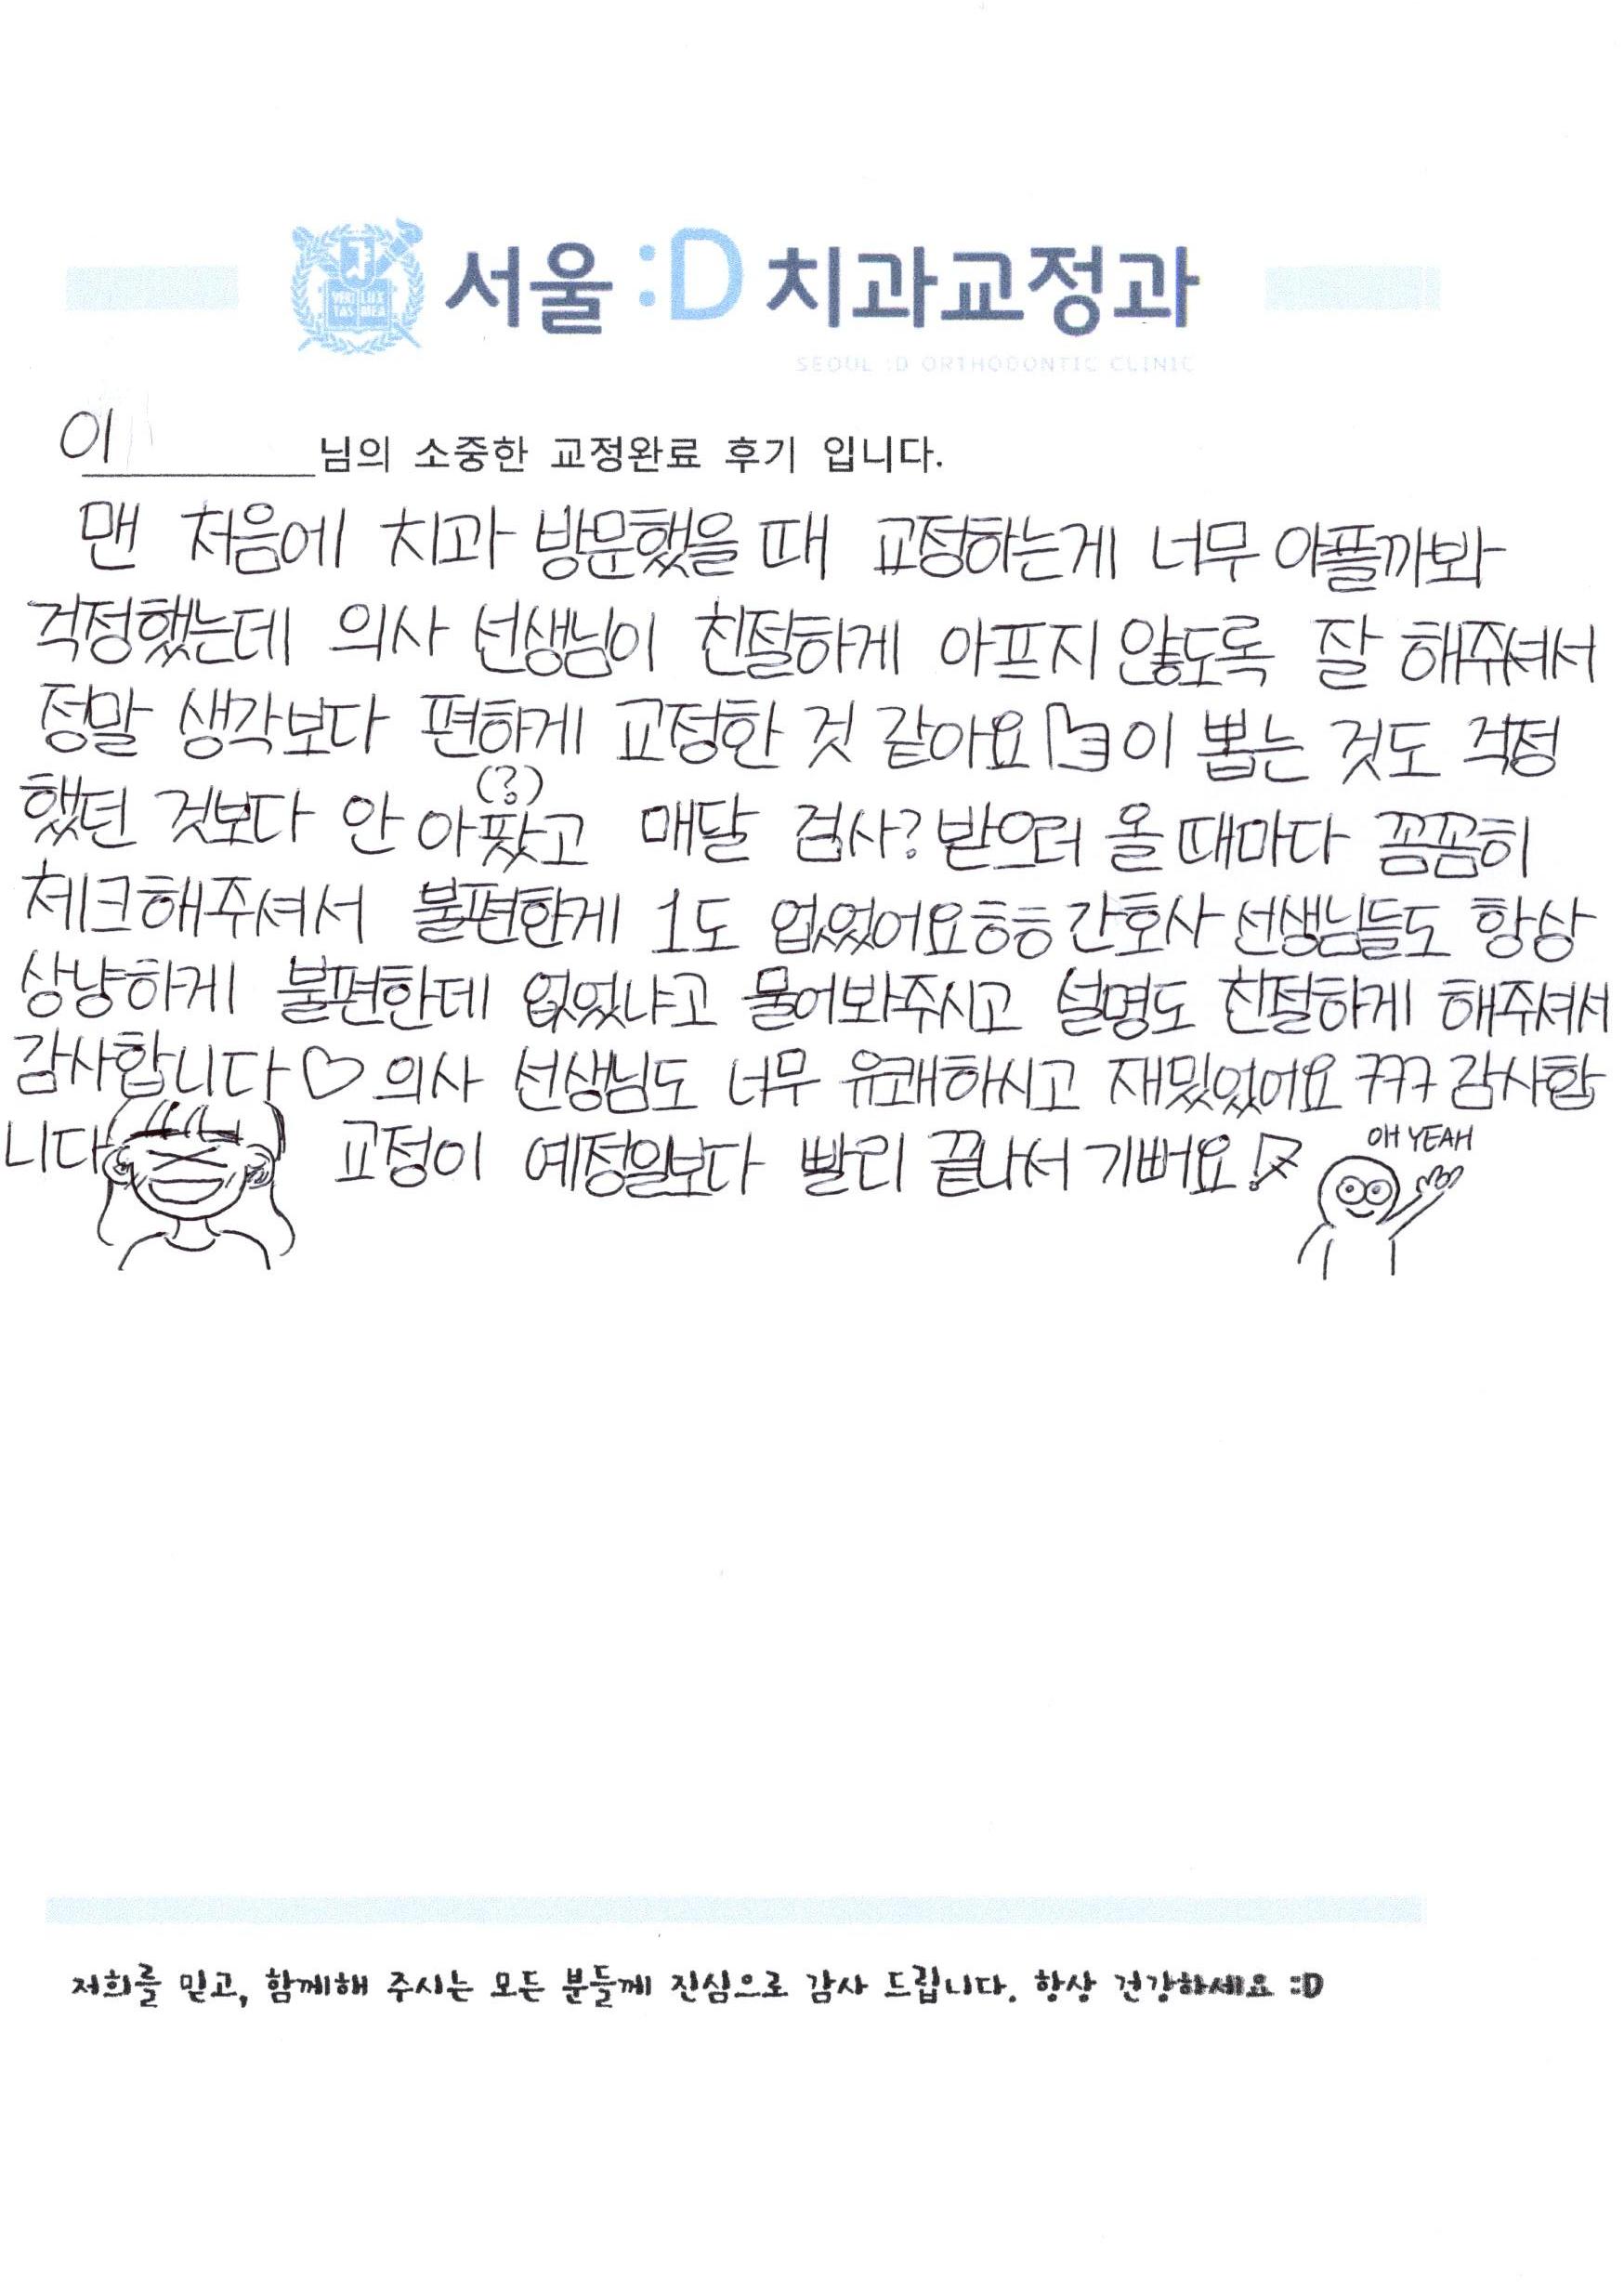 서울 :D 치과교정과
SEOUL :D ORTHODONTIC CLINIC
VERI LUX
TAS MEA
이 님의 소중한 교정완료 후기 입니다.
맨 처음에 치과 방문했을 때 교정하는게 너무 아플까봐
걱정했는데 의사 선생님이 친절하게 아프지 않도록 잘 해주셔서
정말 생각보다 편하게 교정한 것 같아요 이 뽑는 것도 걱정
했던 것보다 안 아팠(?)고 매달 검사? 받으러 올 때마다 꼼꼼히
체크해주셔서 불편한게 1도 없었어요ㅎㅎ 간호사 선생님들도 항상
상냥하게 불편한데 없었냐고 물어봐주시고 설명도 친절하게 해주셔서
감사합니다♡ 의사 선생님도 너무 유쾌하시고 재밌었어요 ㅋㅋㅋ 감사합
니다 교정이 예정일보다 빨리 끝나서 기뻐요!
OH YEAH
저희를 믿고, 함께해 주시는 모든 분들께 진심으로 감사 드립니다. 항상 건강하세요 :D